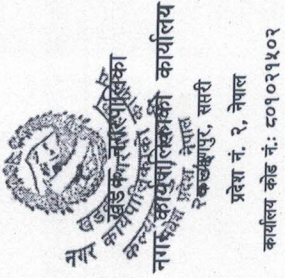 खडक नगरपालिका
नगर कार्यपालिकाको कार्यालय
कल्याणपुर, सप्तरी
प्रदेश नं. २, नेपाल
कार्यालय कोड नं.: ८०१०२१५०२